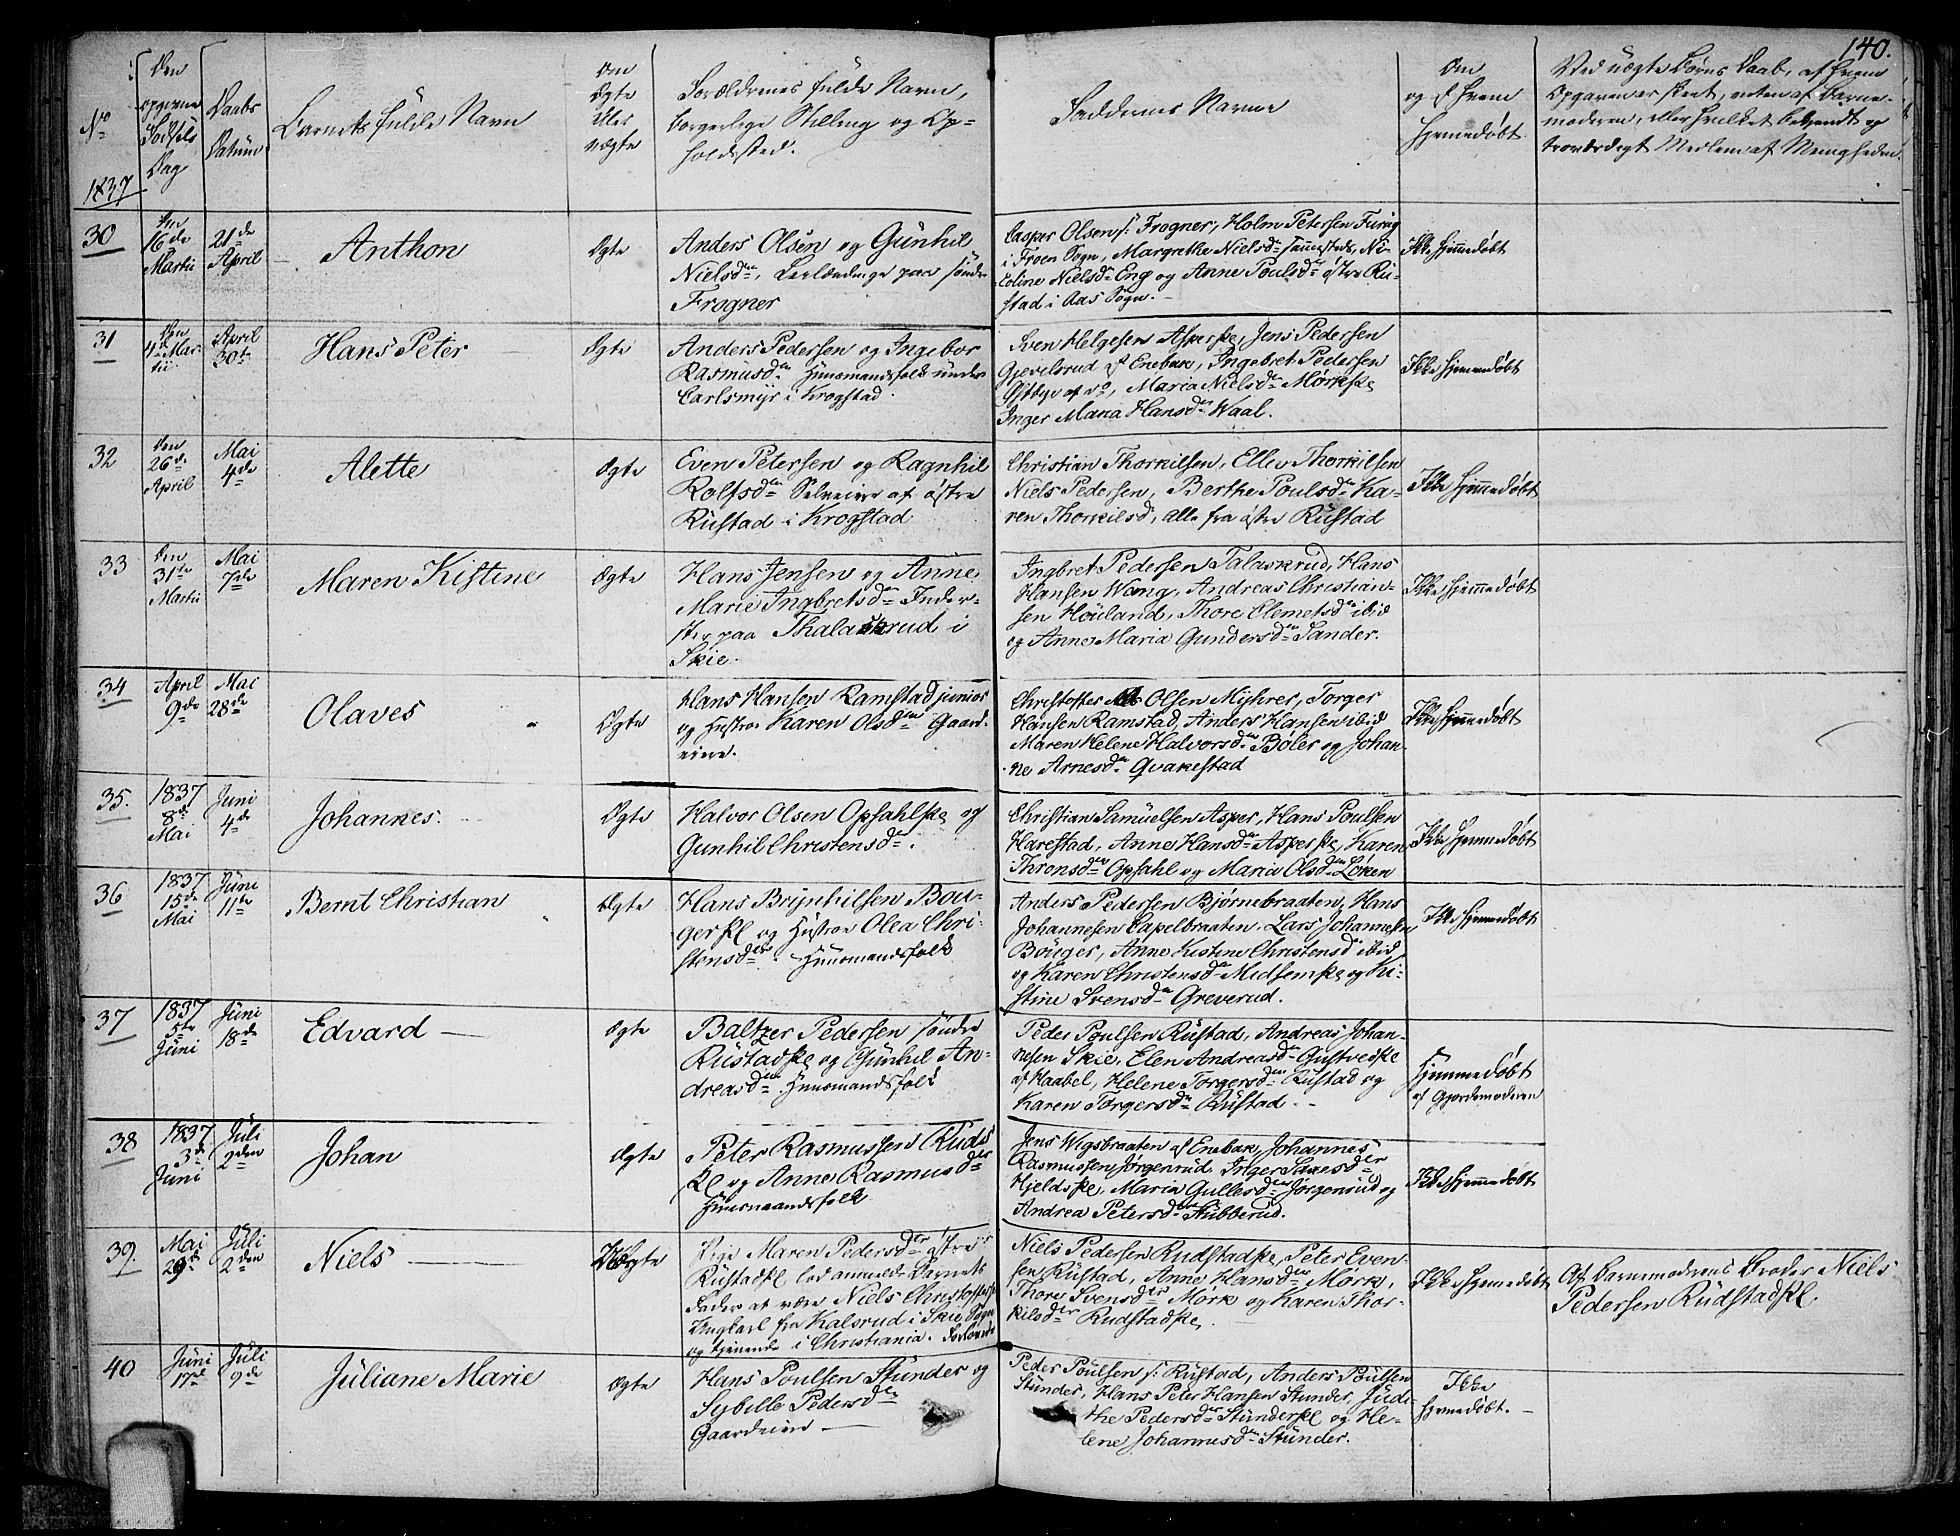 140.
No
1837
Den
opgivne
Fødsels
Dag
Daabs
Datum
Barnets fulde Navn
Om
Ægte
eller
uægte
Forældrenes fulde Navn,
borgerlige Stilling og Op-
holdssted.
Faddernes Navne
Om
og af hvem
hjemmedøbt.
Ved uægte Børns Daab, af hvem
Opgaven er skeet, enten af Barne-
moderen, eller hvilket bekjendt og
troværdigt Medlem af Menigheden.
30
Den
16de
Martii
21de
April
Anthon
Ægte
Anders Olsen og Gunhil
Nielsdn, Leilændinge paa søndre
Frogner
Caspar Olsen s. Frogner, Holm Petersen Furug
i Froen Sogn, Margrethe Nielsdn Tannestads, Ni-
coline Nielsdn Eng og Anne Poulsdn østre Ru-
stad i Aas Sogn.
Ikke hjemmedøbt
31
Den
4de Mar-
tii
April
30te
Hans Peter
Ægte
Anders Pedersen og Ingebor
Rasmusdn Huusmandsfolk under
Carlsmyr i Krogstad.
Sven Helgesen Asperske, Jens Pedersen
Gjevelsrud af Enebak, Ingebret Pedersen
af do, Maria Nielsdn Mørkske
Inger Maria Hansdn Waal.
Ikke hjemmedøbt
32
Den
26de
April
Mai
4de
Alette
Ægte
Even Petersen og Ragnhil
Rolfsdn Selveiere af østre
Rustad i Krogstad
Christian Thorkilsen, Ellev Thorkilsen
Niels Pedersen, Berthe Poulsdn Ka-
ren Thorkilsd, alle fra østre Rustad
Ikke hjemmedøbt
33
Den
31te
Martii
Mai
7de
Maren Kistine
Ægte
Hans Jensen og Anne
Marie Ingbretsdn Inder-
ster paa Thalaskrud i
Skie.
Ingbret Pedersen Talaskrud, Hans
Hansen Wang, Andreas Christian-
sen Høuland, Thore Clemetsdn ibid
og Anne Maria Gundersdn Sander.
Ikke hjemmedøbt
34
April
9de
Mai
28de
Olaves
Ægte
Hans Hansen Ramstad junior
og Hustroe Karen Olsdn Gaard-
eiere.
Christoffer Olsen Myhrer, Torger
Hansen Ramstad, Anders Hansen ibid
Maren Helene Halvorsdn Bøler og Johan-
ne Arnesdn Qvakestad
Ikke hjemmedøbt
35.
1837
8de
Mai
Juni
4de
Johannes.
Ægte
Halvor Olsen Opsahlske og
Gunhil Christensdr.
Christian Samuelsen Asper, Hans Poulsen
Harestad, Anne Hansdn Asperske, Karen
Thronsdn Opsahl og Maria Olsdn Løken
Ikke hjemmedøbt
36
1837
15de
Mai
Juni
11te
Bernt Christian
Ægte
Hans Brynhilsen Bou-
gerske og Hustroe Olea Chri-
stensdtr. Huusmandsfolk
Anders Pedersen Bjørnebraaten, Hans
Johannesen Capelbraaten. Lars Johannesen
Bøuger, Anne Kistene Christensd ibid
og Karen Christensdn Midsemske og Ki-
stine Svensdn Greverud.
Ikke hjemmedøbt
37
1837
5te
Juni
Juni
18de
Edvard
Ægte
Baltzer Pedersen søndre
Rustadske og Gunhil An-
dreasdn Huusmandsfolk
Peder Poulsen Rustad, Andreas Johan-
nesen Skie, Elen Andreasdn Gustvedske
af Haabel, Helene Torgersdn Rustad og
Karen Torgersdn Rustad.
Hjemmedøbt
af Gjordemoderen
38
1837
3de
Juni
Juli
2den
Johan
Ægte
Peter Rasmussen Ruds-
ke og Anne Rasmusdtr
Huusmandsfolk
Jens Wigsbraaten af Enebak, Johannes
Rasmussen Jørgenrud, Inger Larsdtr
Hjeldske, Maria Gullesdn Jørgensrud og
Andrea Petersdn Stubberud.
Ikke hjemmedøbt
39.
Mai
29de
Juli
2den
Niels
Uægte
Pige Maren Pedersdtr østre
Rustadske lod anmelde Barnets
Fader at være Niels Christoffersen
Ungkarl fra Kalsrud i Skie Sogn
og tjenende i Christiania.
Niels Pedersen Rudstadske, Peter Even-
sen Rustad, Anne Hansdn Mørk,
Thore Svensdtr Mørk og Karen Thor-
kilsdtr Rudstadske.
Ikke hjemmedøbt
Af Barnemoderens Broder Niels
Pedersen Rudstadske.
40
Juni
17de
Juli
9de
Juliane Marie
Ægte
Hans Poulsen Stunder og
Sybille Pedersdn
Gaardeiere
Peder Poulsen s. Rustad, Anders Poulsen
Stunder, Hans Peter Hansen Stunder, Judi-
the Pedersdn Stunderske og He-
lene Johannesdn Stunder.
Ikke
hjemmedøbt.